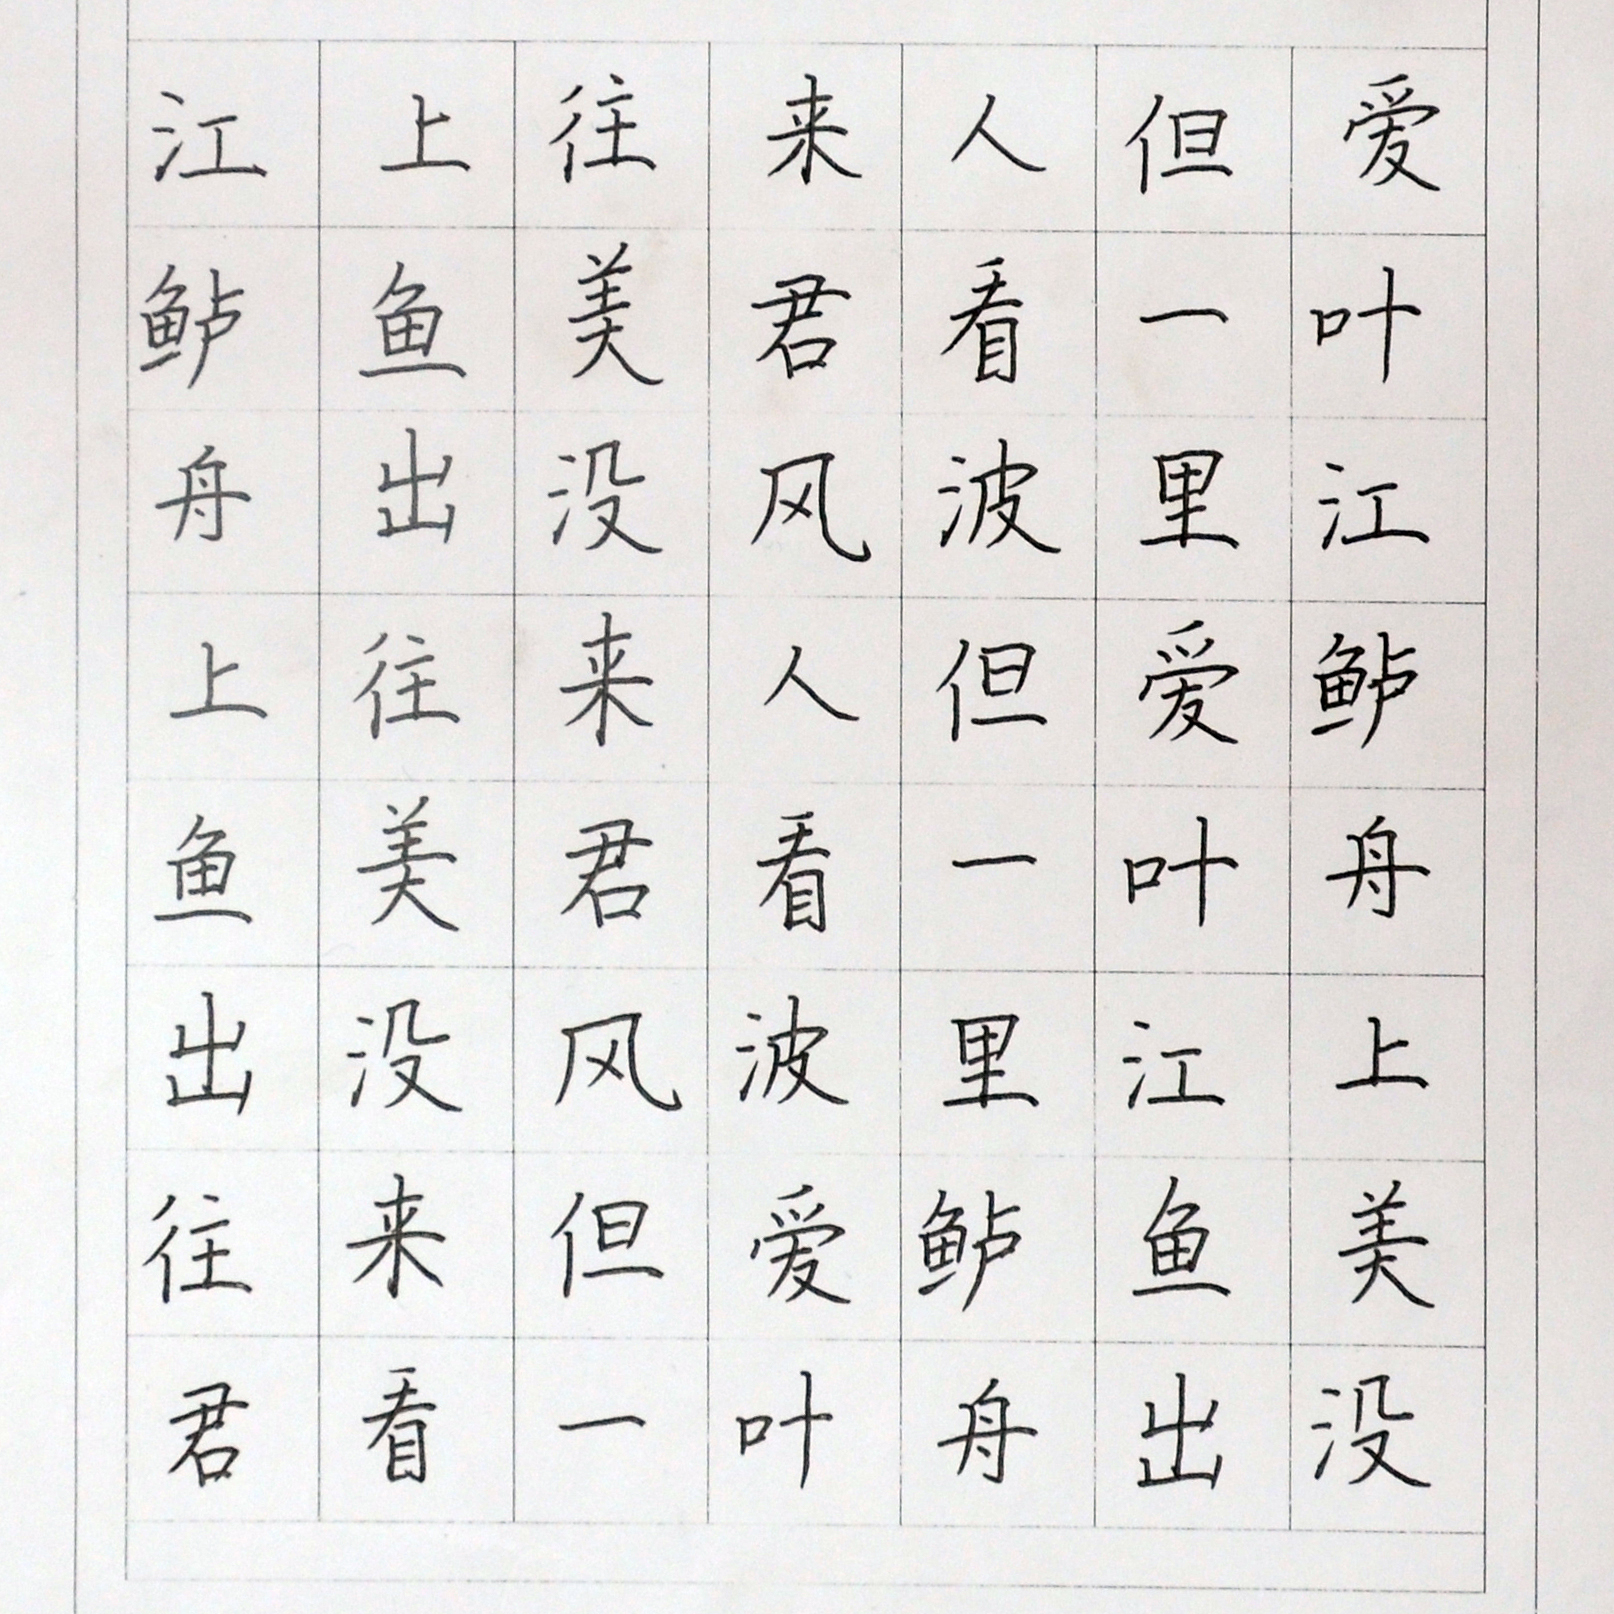 江上往来人但爱
鲈鱼美君看一叶
舟出没风波里江
上往来人但爱鲈
鱼美君看一叶舟
出没风波里江上
往来但爱鲈鱼美
君看一叶舟出没